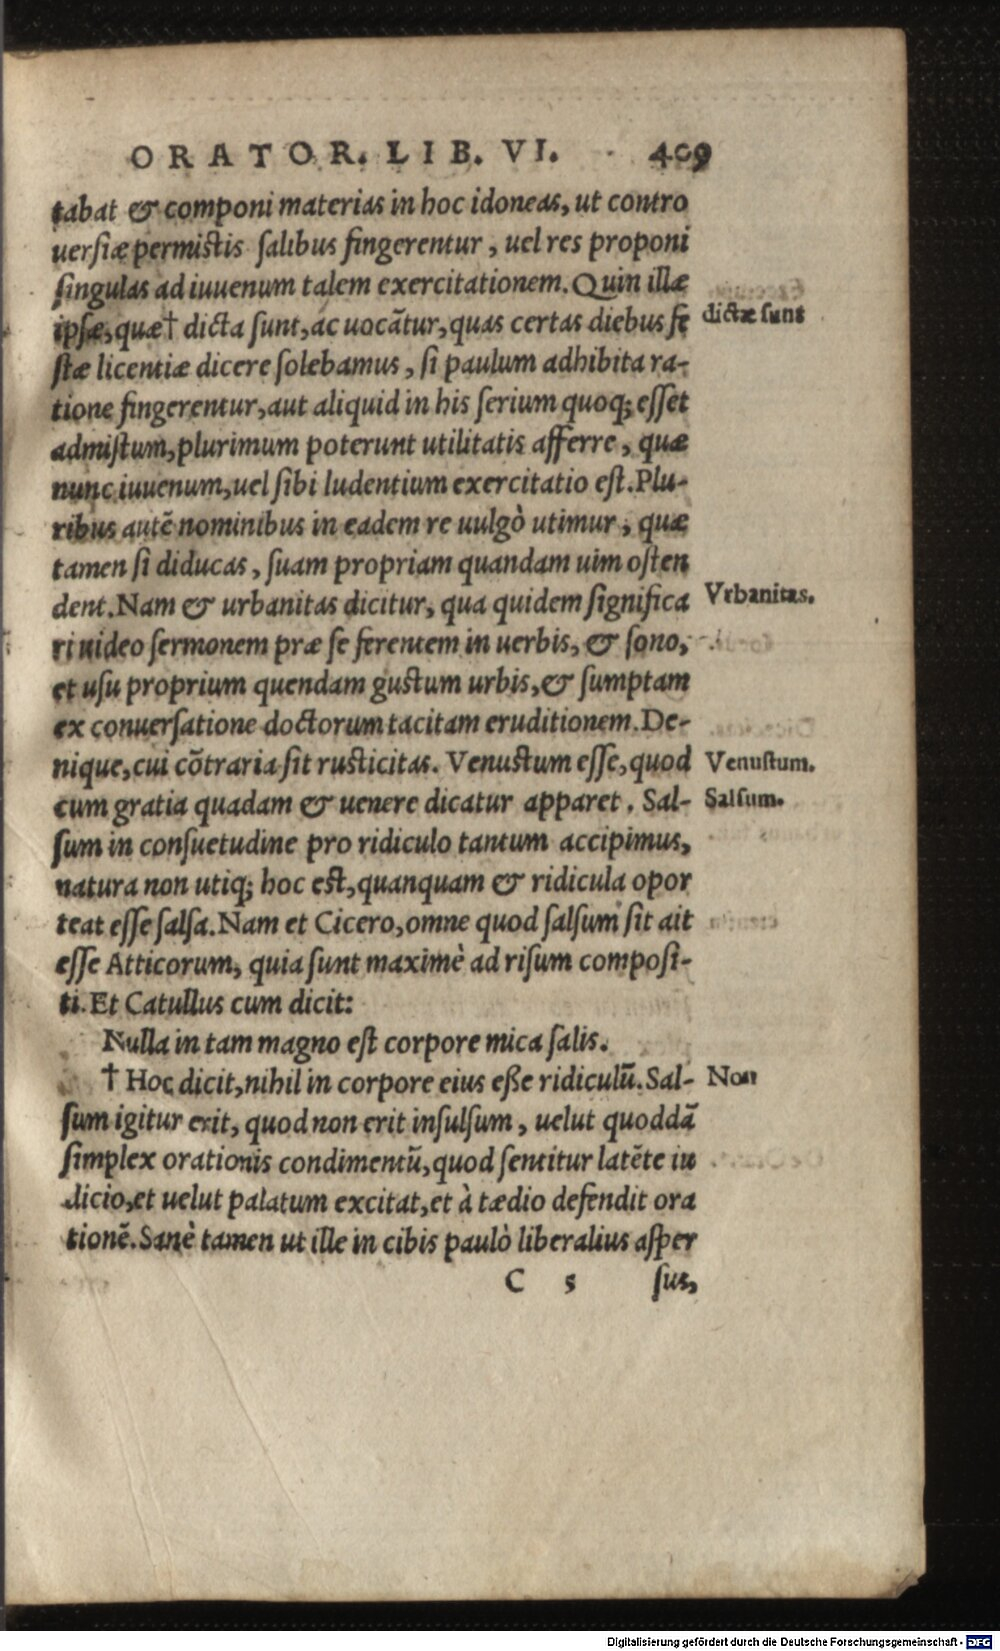 ORATOR. LIB. VI. 409
tabat & componi materias in hoc idoneas, ut contro
uersiæ permistis salibus fingerentur, uel res proponi
singulas ad iuuenum talem exercitationem. Quin illæ
ipsæ, quæ† dicta sunt, ac uocãtur, quas certas diebus fe
dictæ sunt
stæ licentiæ dicere solebamus, si paulum adhibita ra-
tione fingerentur, aut aliquid in his serium quoq; esset
admistum, plurimum poterunt utilitatis afferre, quæ
nunc iuuenum, uel sibi ludentium exercitatio est. Plu-
ribus autẽ nominibus in eadem re uulgò utimur, quæ
tamen si diducas, suam propriam quandam uim osten
dent. Nam & urbanitas dicitur, qua quidem significa
Vrbanitas.
ri uideo sermonem præ se ferentem in uerbis, & sono,
et usu proprium quendam gustum urbis, & sumptam
ex conuersatione doctorum tacitam eruditionem. De-
nique, cui cõtraria sit rusticitas. Venustum esse, quod
Venustum.
cum gratia quadam & uenere dicatur apparet. Sal-
Salsum.
sum in consuetudine pro ridiculo tantum accipimus,
natura non utiq; hoc est, quanquam & ridicula opor
teat esse salsa. Nam et Cicero, omne quod salsum sit ait
esse Atticorum, quia sunt maximè ad risum composi-
ti. Et Catullus cum dicit:
Nulla in tam magno est corpore mica salis.
† Hoc dicit, nihil in corpore eius eße ridiculũ. Sal-
Non
sum igitur erit, quod non erit insulsum, uelut quoddã
simplex orationis condimentũ, quod sentitur latẽte iu
dicio, et uelut palatum excitat, et à tædio defendit ora
tionẽ. Sanè tamen ut ille in cibis paulò liberalius asper
C 5 sus,
Digitalisierung gefördert durch die Deutsche Forschungsgemeinschaft - DFG